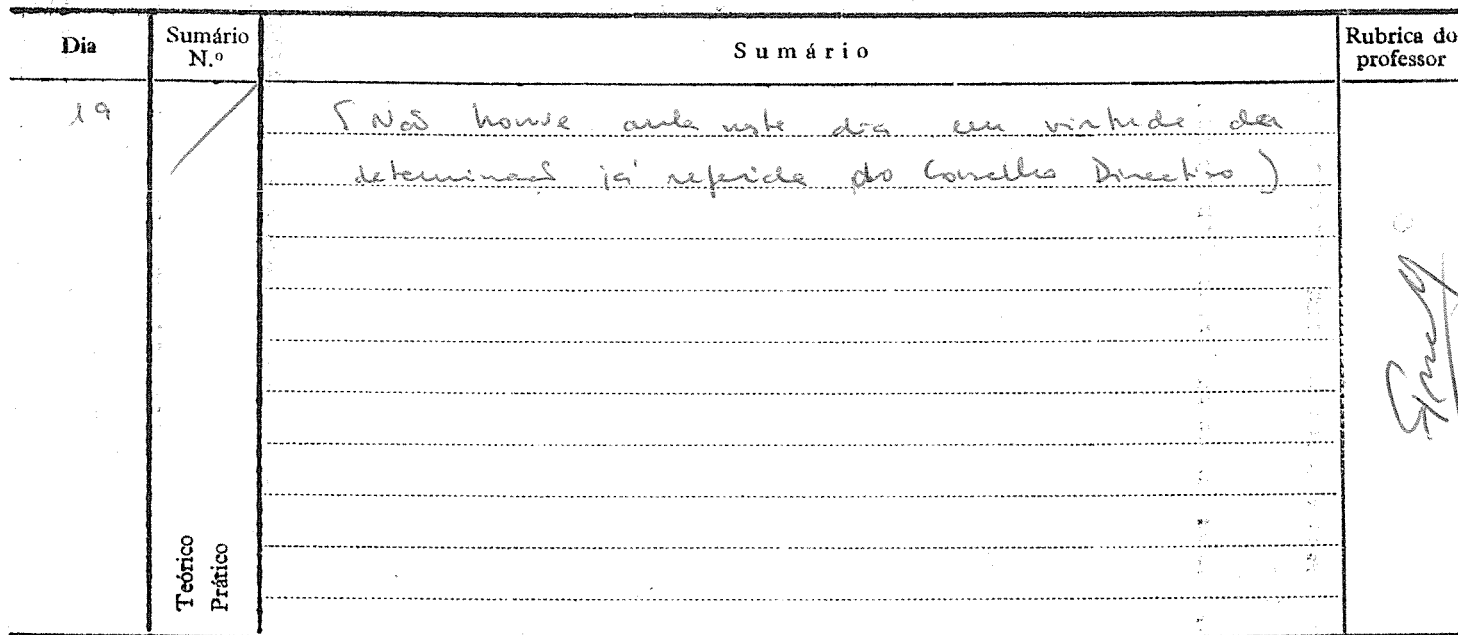 Dia
Sumário N.º
Sumário
Rubrica do professor
19
(Não houve aula neste dia em virtude da
determinação já referida do Conselho Directivo)
Teórico
Prático